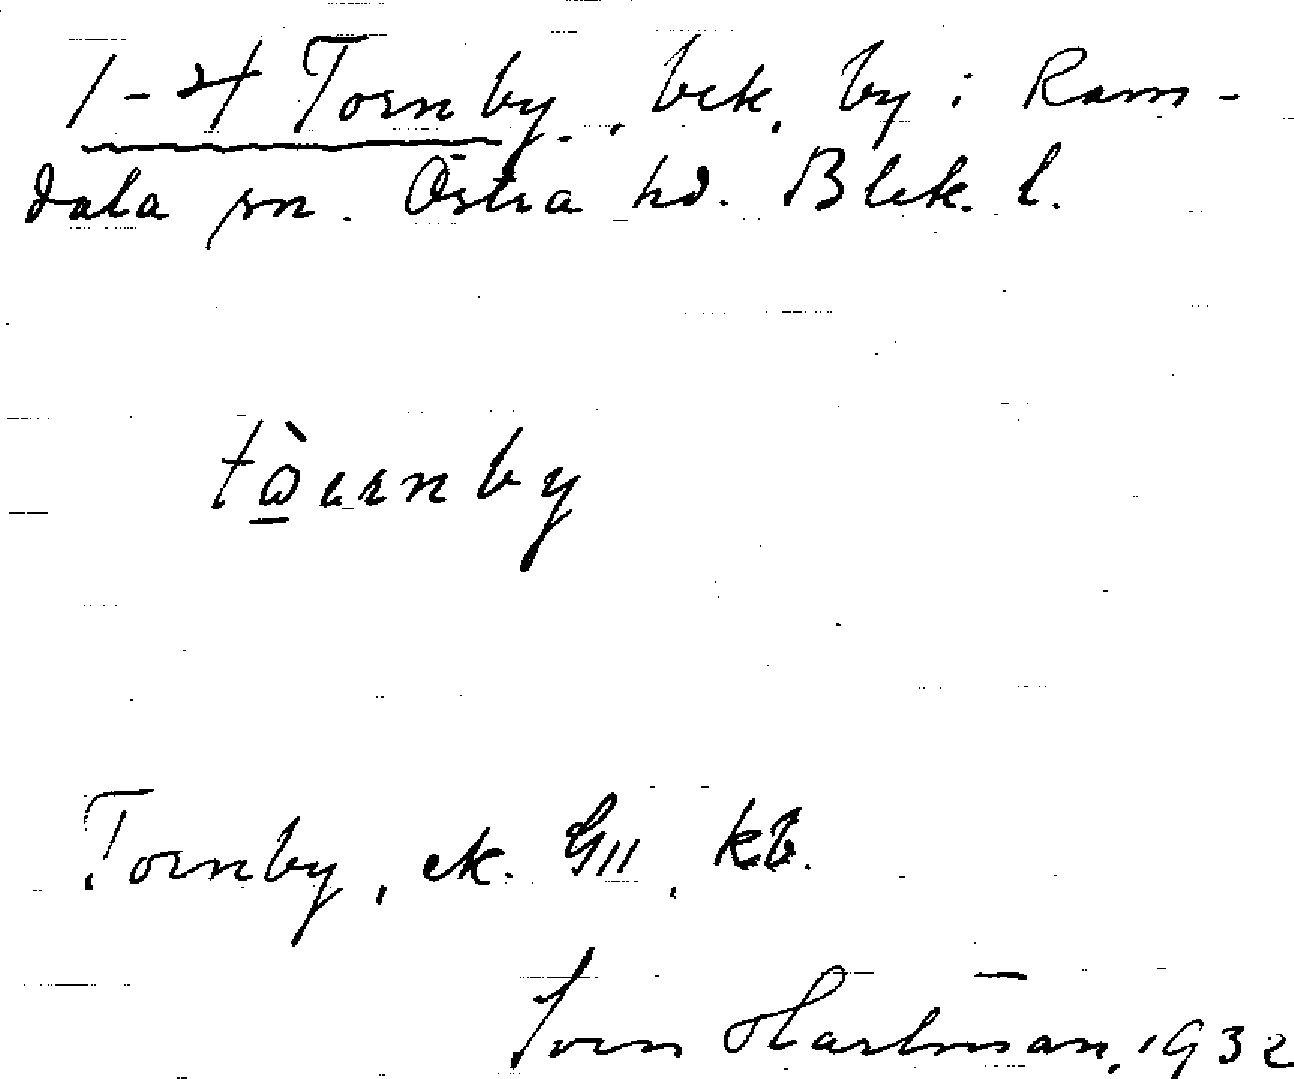 1-4 Tornby, bek. by i Ram-
dala sn. Östra hd. Blek. l.
Tornby, ek. 911, kb.
Sven Hartman, 1932